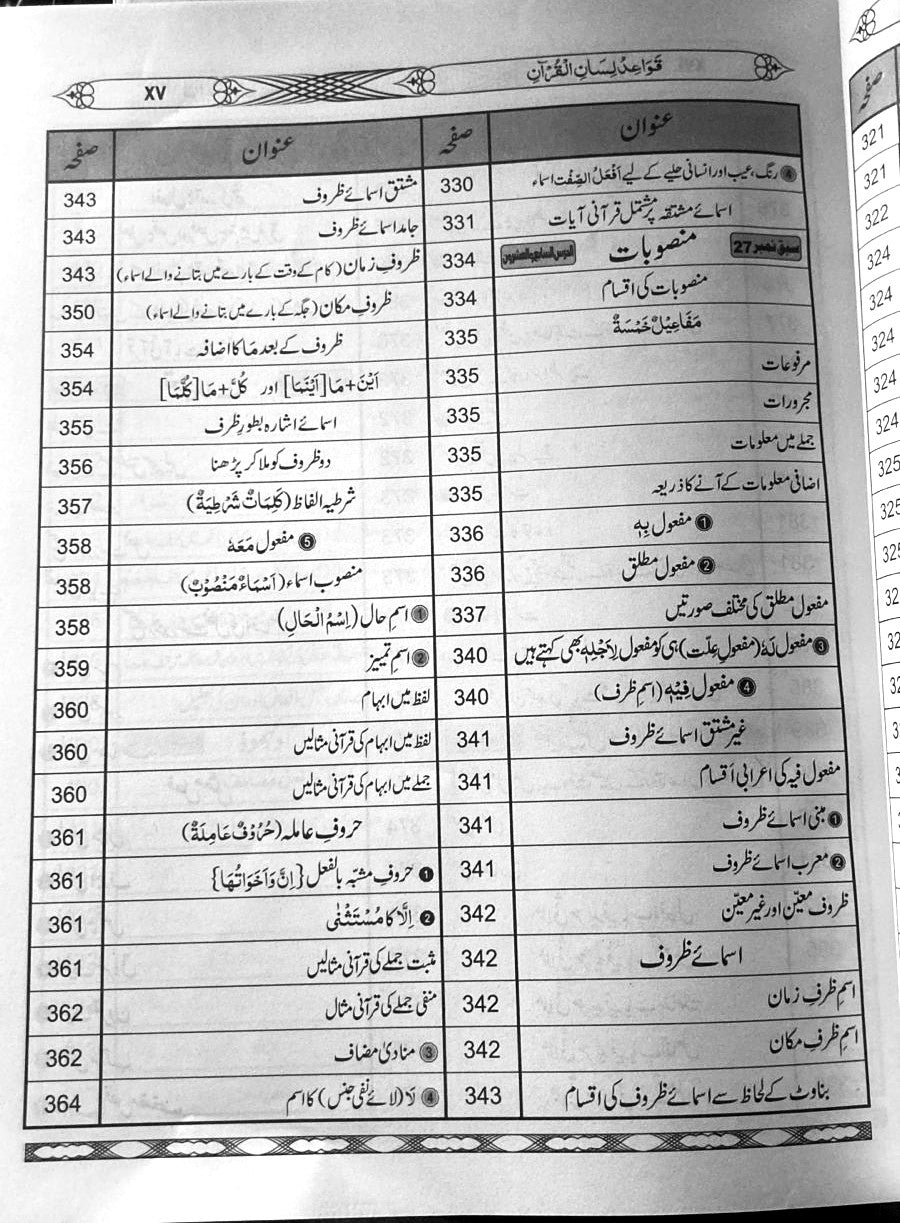 قَوَاعِدُ لِسَانِ الْقُرْآنِ
XV
عنوان صفحہ
❹ رنگ، عیب اور انسانی حلیے کے لیے اَفْعَلُ الصِّفت اسماء 330
اسمائے مشتقہ پر مشتمل قرآنی آیات 331
سبق نمبر 27 منصوبات الدرس السابع والعشرون 334
منصوبات کی اقسام 334
مَفَاعِيْلُ خَمْسَةٌ 335
مرفوعات 335
مجرورات 335
جملے میں معلومات 335
اضافی معلومات کے آنے کا ذریعہ 335
❶ مفعول بِہٖ 336
❷ مفعول مطلق 336
مفعول مطلق کی مختلف صورتیں 337
❸ مفعول لَہٗ (مفعولِ علّت) ہی کو مفعول لِاَجْلِہٖ بھی کہتے ہیں 340
❹ مفعول فِیْہِ (اسمِ ظرف) 340
غیر مشتق اسمائے ظروف 341
مفعول فیہ کی اعرابی اَقسام 341
❶ مبنی اسمائے ظروف 341
❷ معرب اسمائے ظروف 341
ظروف معیّن اور غیر معیّن 342
اسمائے ظروف 342
اسمِ ظرفِ زمان 342
اسمِ ظرفِ مکان 342
بناوٹ کے لحاظ سے اسمائے ظروف کی اقسام 343
عنوان صفحہ
مشتق اسمائے ظروف 343
جامد اسمائے ظروف 343
ظروفِ زمان (کام کے وقت کے بارے میں بتانے والے اسماء) 343
ظروفِ مکان (جگہ کے بارے میں بتانے والے اسماء) 350
ظروف کے بعد مَا کا اضافہ 354
اَیْنَ+مَا [اَیْنَمَا] اور کُلَّ+مَا [کُلَّمَا] 354
اسمائے اشارہ بطورِ ظرف 355
دو ظروف کو ملا کر پڑھنا 356
شرطیہ الفاظ (کَلِمَاتٌ شَرْطِیَةٌ) 357
❺ مفعول مَعَہ 358
منصوب اسماء (اَسْمَاءٌ مَنْصُوْبٌ) 358
❶ اسمِ حال (اِسْمُ الْحَالِ) 358
❷ اسمِ تمییز 359
لفظ میں ابہام 360
لفظ میں ابہام کی قرآنی مثالیں 360
جملے میں ابہام کی قرآنی مثالیں 360
حروفِ عاملہ (حُرُوْفٌ عَامِلَةٌ) 361
❶ حروفِ مشبّہ بالفعل {اِنَّ وَاَخَوَاتُهَا} 361
❷ اِلَّا کا مُسْتَثْنٰی 361
مثبت جملے کی قرآنی مثالیں 361
منفی جملے کی قرآنی مثال 362
❸ منادیٰ مضاف 362
❹ لَا (لائے نفی جنس) کا اسم 364
صفحہ
321
321
322
324
324
324
324
324
325